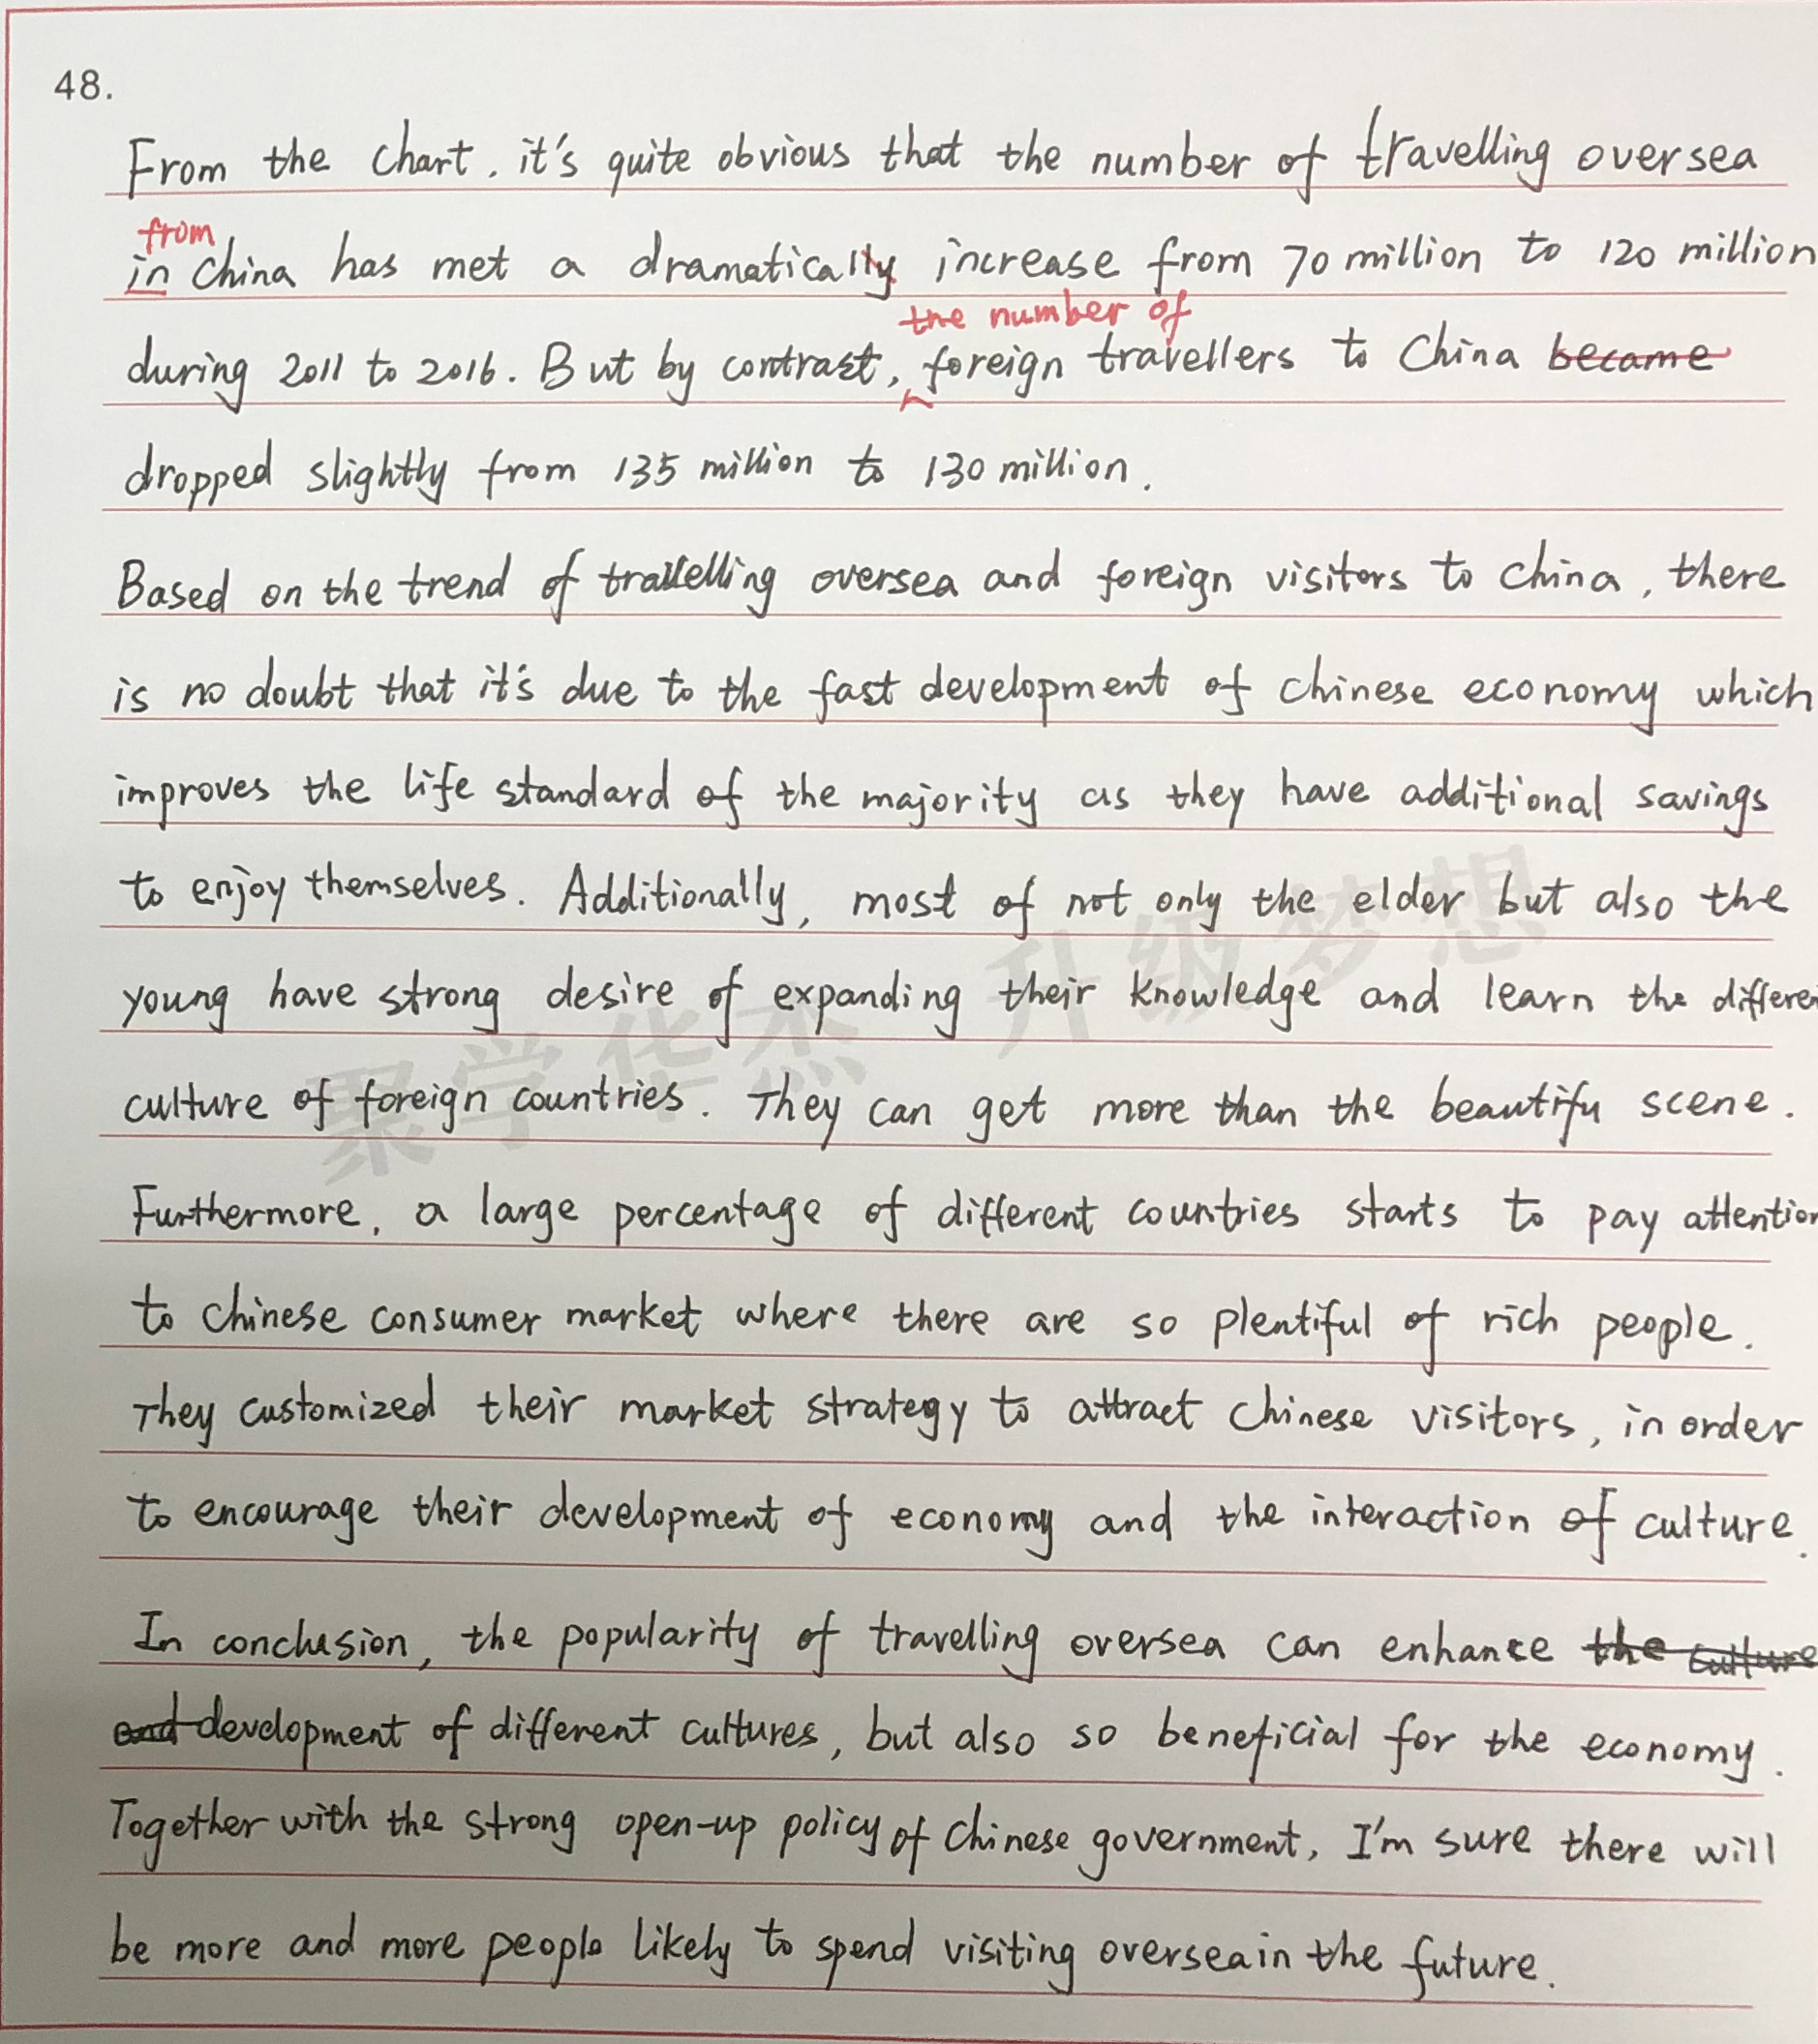 48.
From the chart, it's quite obvious that the number of travelling oversea
from
in China has met a dramatically increase from 70 million to 120 million
the number of
during 2011 to 2016. But by contrast, foreign travellers to China became
dropped slightly from 135 million to 130 million.
Based on the trend of travelling oversea and foreign visitors to China, there
is no doubt that it's due to the fast development of Chinese economy which
improves the life standard of the majority as they have additional savings
to enjoy themselves. Additionally, most of not only the elder but also the
young have strong desire of expanding their knowledge and learn the differen
culture of foreign countries. They can get more than the beautifu scene.
Furthermore, a large percentage of different countries starts to pay attention
to Chinese consumer market where there are so plentiful of rich people.
They customized their market strategy to attract Chinese visitors, in order
to encourage their development of economy and the interaction of culture.
In conclusion, the popularity of travelling oversea can enhance the culture
and development of different cultures, but also so beneficial for the economy.
Together with the strong open-up policy of Chinese government, I'm sure there will
be more and more people likely to spend visiting oversea in the future.
聚学华杰 升级梦想